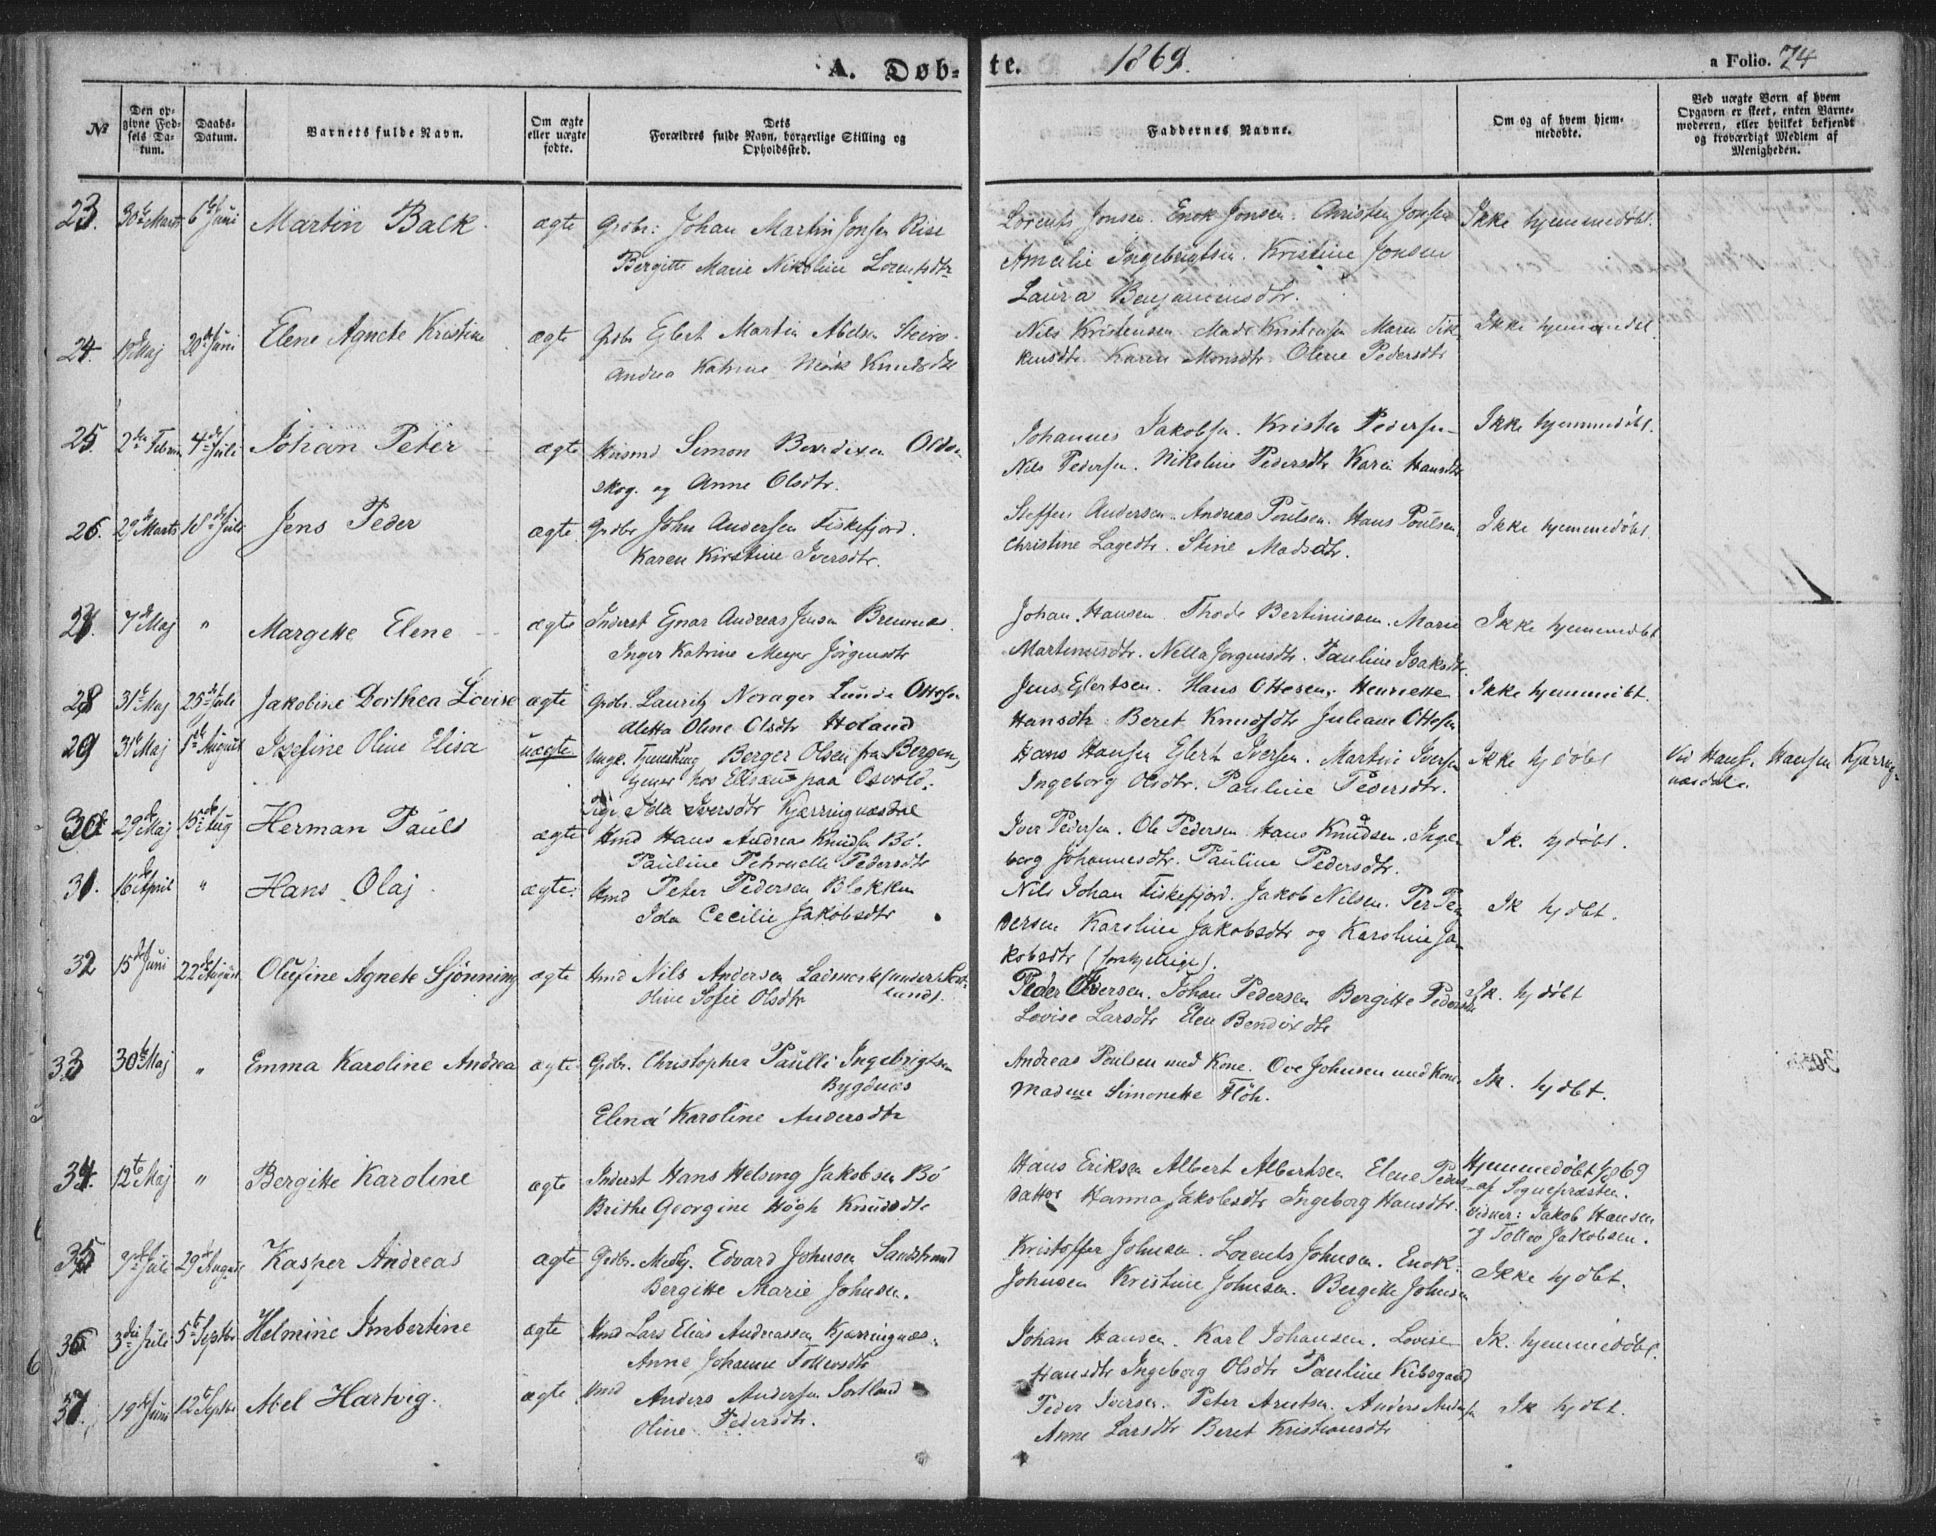 A. Døbte. 1869. a Folio. 74
No
Den opgivne Fødsels Datum.
Daabs-Datum.
Barnets fulde Navn.
Om ægte eller uægte fødte.
Dets Forældres fulde Navn, borgerlige Stilling og Opholdssted.
Faddernes Navne.
Om og af hvem hjemmedøbte.
Ved uægte Børn af hvem Opgaven er skeet, enten Barnemoderen, eller hvilket bekjendt og troværdigt Medlem af Menigheden.
23. 30te Marts 6te Juni Martin Balk ægte Grdbr: Johan Martin Jonsen Rise
Bergitte Marie Nikoline Lorentsdtr
Lorents Jonsen. Enok Jonsen. Christen Jonsen
Amalie Ingebrigtsen. Kristine Jonsen
Laura Benjaminsdtr.
Ikke hjemmedøbt.
24. Maj Juni Elene Agnete Kristine ægte Grdbr Elert Martin Abelsen
Andrea Katrine Mørk Knudsdtr
Nils Kristensen Mads Kristensen Maren
Karen Monsdtr. Oline Pedersdtr
Ikke hjemmedøbt.
25. 2den Februar 4de Juli Johan Peter ægte Husmd Simon Bendixen
skog. og Anne Olsdtr.
Johannes Jakobsen. Kristen Pedersen
Nils Pedersen. Nikoline Pedersdtr Karen Hansdtr
Ikke hjemmedøbt.
26. 29de Marts 18de Juli Jens Peder ægte. Grdbr John Andersen Fiskefjord.
Karen Kirstine Iversdtr.
Steffen Andersen. Andreas Poulsen. Hans Poulsen
Christine Lagedtr. Stine Madsdtr.
Ikke hjemmedøbt.
27. 7de Maj " Margette Elene ægte Inderst Gnar Andreas Jensen Bremnes.
Inger Katrine Meyer Jörgensdtr
Johan Hansen. Thode Bertinussen. Marie
Martinusdtr. Nella Jorgensdtr. Pauline Isaksdtr.
Ikke hjemmedøbt
28 31te Maj 25de Juli Jakobine Dorthea Lovise ægte Grdbr. Lauritz Norager Lunde Ottesen
Aletta Oline Olsdtr Holand
Jens Elertsen. Hans Ottesen. Henriette
Hansdtr. Beret Knudsdtr Juliane Ottesen
29 31te Maj 1ste August Josefine Oline Elisa uægte Ungk. Berger Olsen fra Bergen,
tjener hos Ellisen paa Osvold.
Pige Ida Iversdtr Kjerringnæsdal
Hans Hansen Elert Iversen. Martin Iversen
Ingeborg Olsdtr. Pauline Pedersdtr.
Ikke hjdøbt
Ved Hans. Hansen Kjerringnæsdal.
30. 29de Maj 15de Aug Herman Pauls ægte Hmd Hans Andreas Knudsen Bö.
Pauline Petronelle Pedersdtr
Iver Pedersen. Ole Pedersen Hans Knudsen. Ingeborg Johannesdtr. Pauline Pedersdtr.
Ik. hjdøbt.
31. 16de April " Hans Olaj ægte: Hmd Peter Pedersen Blokken
Ida Cecilie Jakobsdtr
Nils Johan Fiskefjord. Jakob Nilsen. Per Pedersen Karoline Jakobsdtr og Karoline Jakobsdtr (forskjellige).
Ik hjdbt.
32 15de Juni 22de August Olufine Agnete Sjönning ægte Hmd Nils Andersen Ladmark under Sortlands.
Oline Sofie Olsdtr
Peder Iversen. Johan Pedersen Bergitte Pedersdtr
Lovise Larsdtr Elen Bendixdtr
Ik. hjdöbt
33 30te Maj " Emma Karoline Andrea ægte Grdbr. Christopher Paulli Ingebrigtsen
Bygdnæs
Elena Karoline Andersdtr
Andreas Poulsen med Kone. Ove Johnsen med Kone
Madme Simonette Flöh.
Ik. hjdbt.
34. 12te Maj " Bergitte Karoline ægte Inderst Hans Helsing Jakobsen Bö
Brithe Georgine Högh Knudsdtr
Hans Eriksen Albert Albertsen Elene Pedersdatter Hanna Jakobsdtr Ingeborg Hansdtr.
af Sognepræsten.
Vidner: Jakob Hansen
og Tollev Jakobsen.
35. 7de Juli 29de August Kasper Andreas ægte Grdbr. Medhj. Edvard Johnsen Sandstrand
Bergitte Marie Johnsen.
Kristoffer Johnsen. Lorents Johnsen. Enok
Johnsen Kristine Johnsen. Bergitte Johnsen
Ikke hjdbt.
36 3die Juli 5te Septbr Helmine Imbertine ægte Hmd Lars Elias Andreassen Kjerringnæs.
Anne Johanne Tollevsdtr
Johan Hansen. Karl Johansen. Lovise
Hansdtr Ingeborg Olsdtr Pauline Kibsgaard
Ik. hjemmedøbt.
37. 19de Juni 12te Septbr Abel Hartvig. ægte. Hmd Anders Andersen Sortland
Oline Pedersdtr.
Peder Iversen. Peter Arntsen. Anders Andersen
Anne Larsdtr Beret Kristiansdtr
Ik hjdbt.